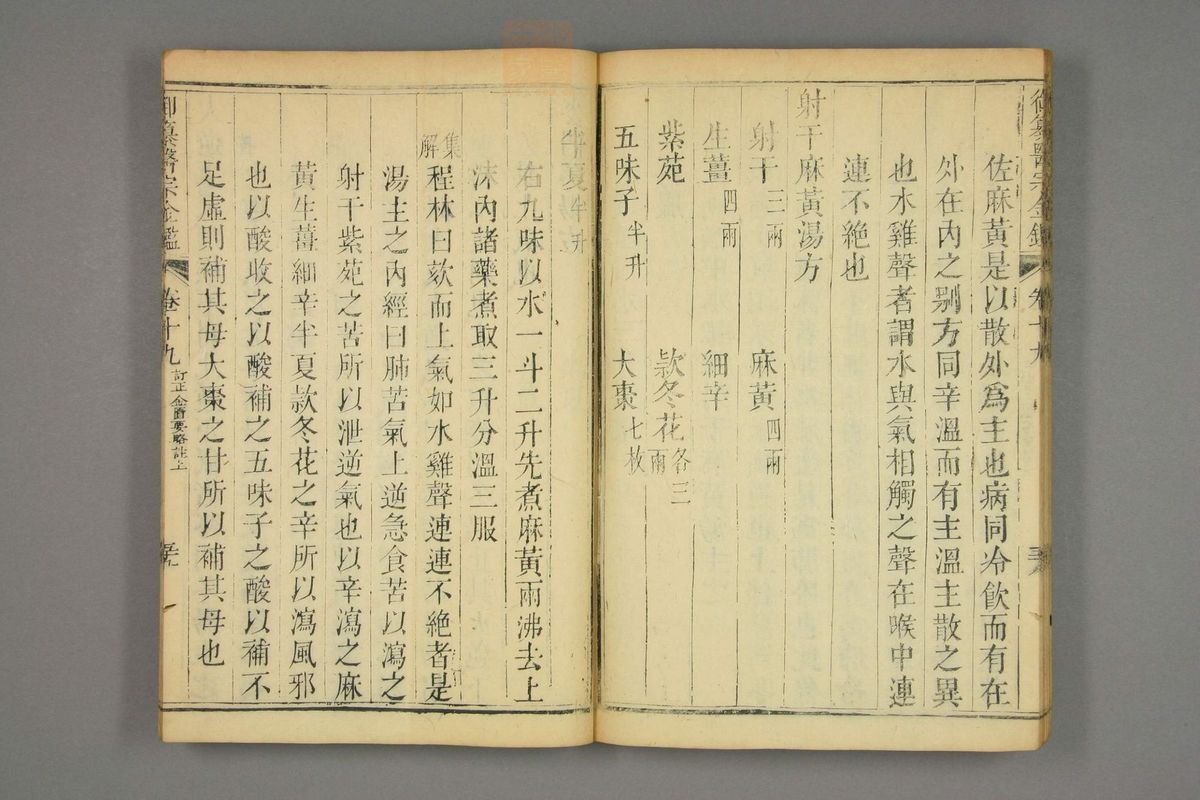 御纂醫宗金鑑 卷十九
佐麻黃是以散外爲主也病同冷飲而有在
外在內之别方同辛溫而有主溫主散之異
也水雞聲者謂水與氣相觸之聲在喉中連
連不絶也
射干麻黃湯方
射干三兩 麻黃四兩
生薑四兩 細辛
紫苑 款冬花各三兩
五味子半升 大棗七枚
半夏半升
右九味以水一斗二升先煮麻黃兩沸去上
沫內諸藥煮取三升分溫三服
集解程林曰欬而上氣如水雞聲連連不絶者是
湯主之內經曰肺苦氣上逆急食苦以瀉之
射干紫苑之苦所以泄逆氣也以辛瀉之麻
黃生薑細辛半夏款冬花之辛所以瀉風邪
也以酸收之以酸補之五味子之酸以補不
足虛則補其母大棗之甘所以補其母也
御纂醫宗金鑑 卷十九 訂正金匱要略註上 至九